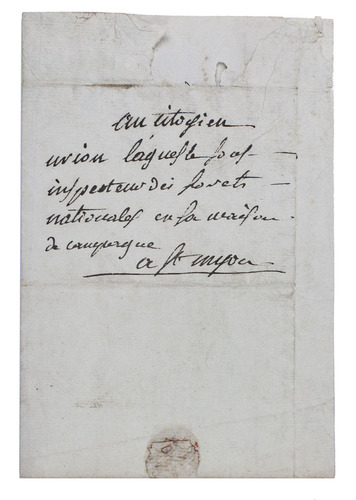 au citoyen
urion laqueste sous-
inspecteur des forets
nationales en sa maison
de campagne
a St